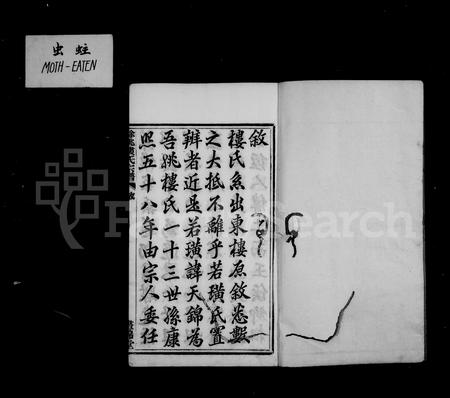 虫蛀
MOTH-EATEN
敘
樓氏系出東樓原敘悉
之大抵不離乎若璜氏置
辨者近是若璜諱天錦為
吾姚樓氏一十三世孫康
熙五十八年由宗人委任
FamilySearch